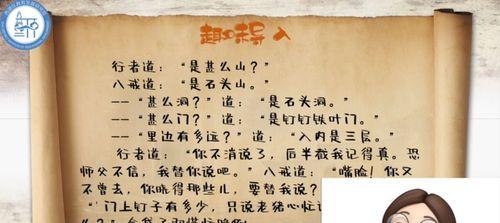 趣味导入
行者道：“是甚么山？”
八戒道：“是石头山。”
--“甚么洞？”道：“是石头洞。”
--“甚么门？”道：“是钉钉铁叶门。”
--“里边有多远？”道：“入内是三层。”
行者道：“你不消说了，后半截我记得真。恐
师父不信，我替你说吧。”八戒道：“嘴脸！你又
不曾去，你晓得那些儿，要替我说？
“‘门上钉子有多少，只说老猪心忙